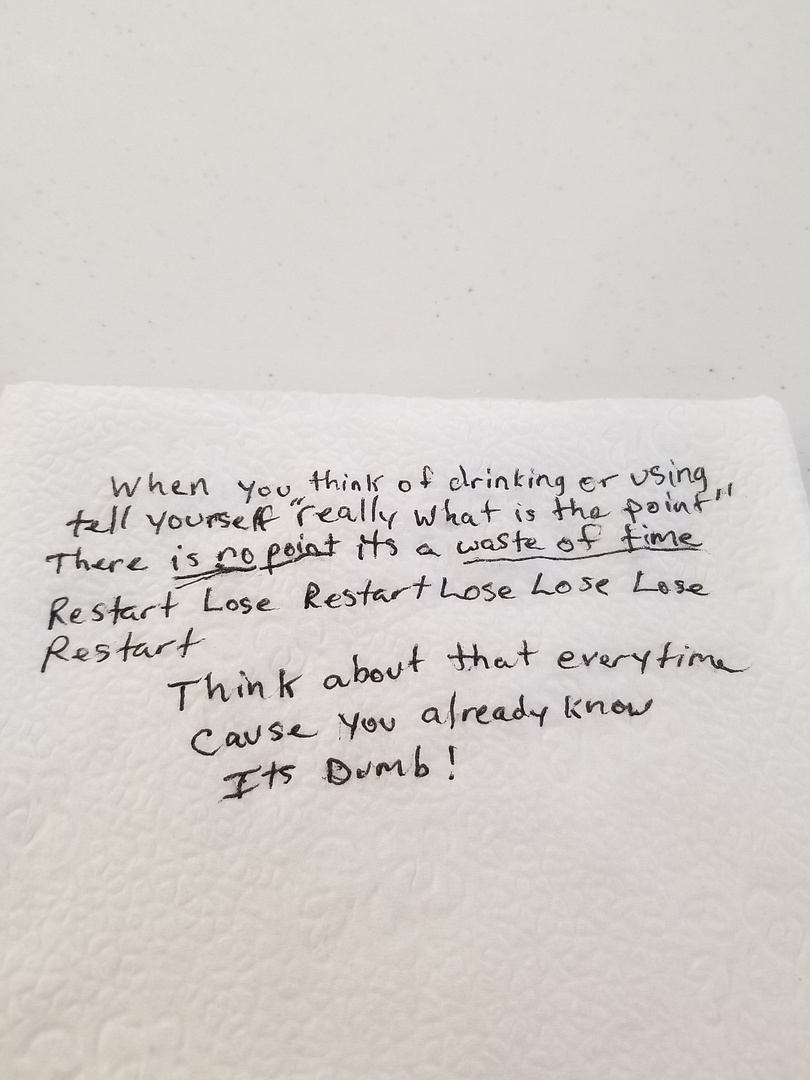 When you think of drinking or using
tell yourself "really what is the point"
There is no point its a waste of time
Restart Lose Restart Lose Lose Lose
Restart
Think about that everytime
Cause you already know
Its Dumb!